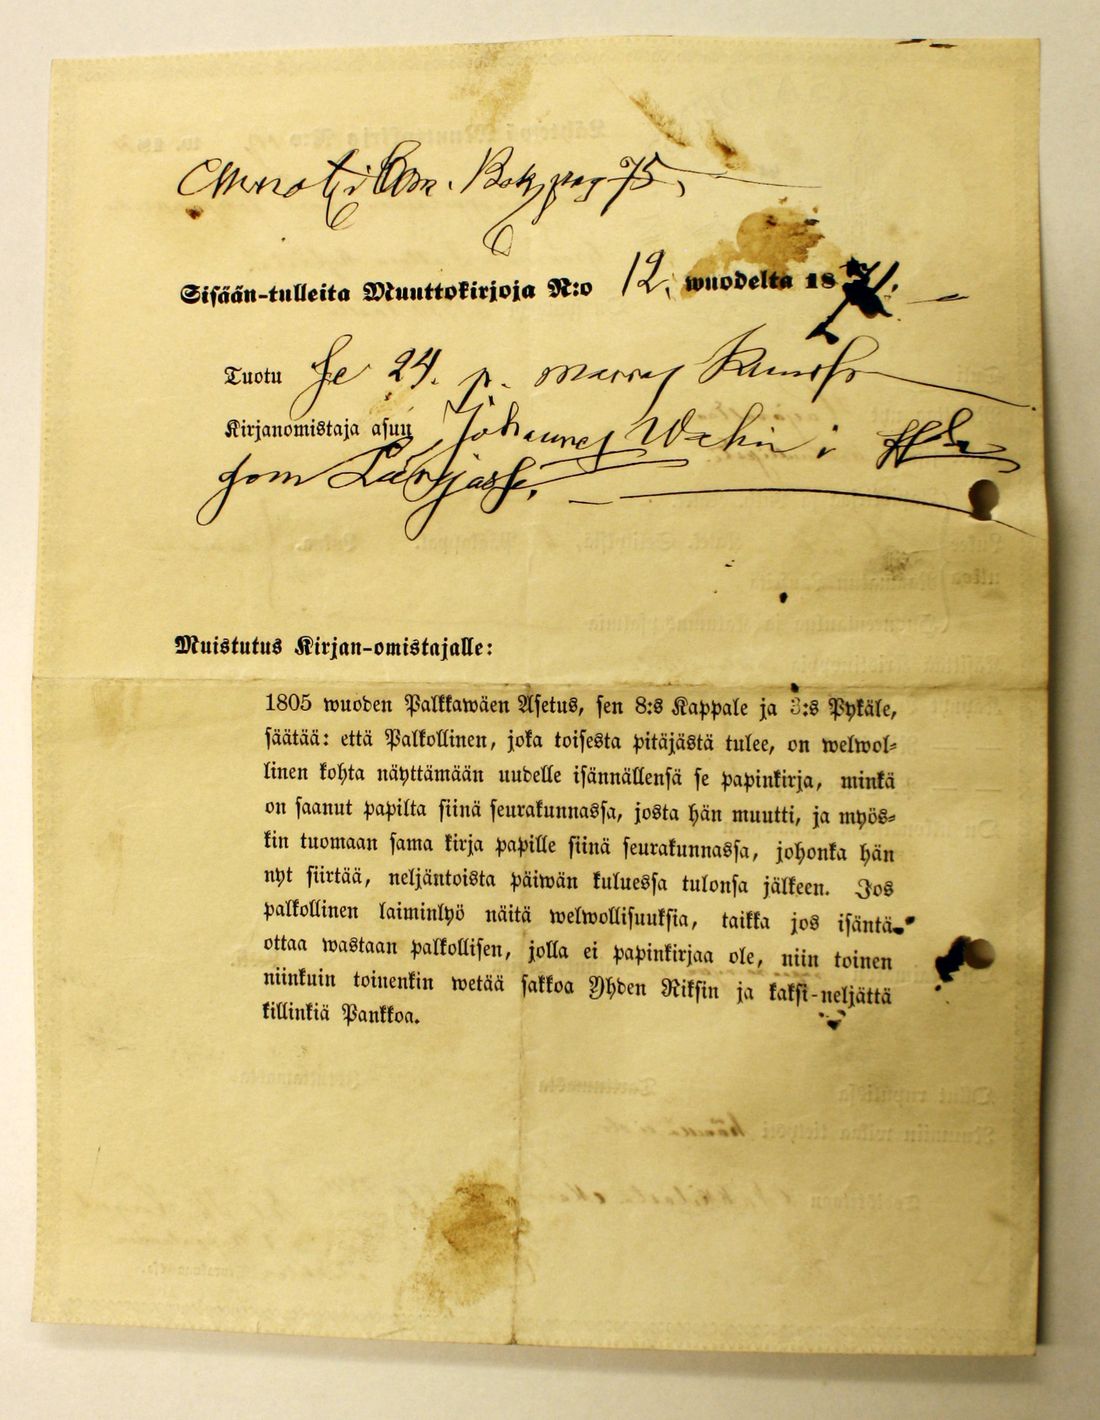 Bok pag 75,
Sisään-tulleita Muuttokirjoja N:o 12. wuodelta 1871.
Tuotu 24.
Kirjanomistaja asuu Johannes i
som
Muistutus Kirjan-omistajalle:
1805 wuoden Palkkawäen Asetus, sen 8:s Kappale ja 3:s Pykäle,
säätää: että Palkollinen, joka toisesta pitäjästä tulee, on welwol-
linen kohta näyttämään uudelle isännällensä se papinkirja, minkä
on saanut papilta siinä seurakunnassa, josta hän muutti, ja myös-
kin tuomaan sama kirja papille siinä seurakunnassa, johonka hän
nyt siirtää, neljäntoista päiwän kuluessa tulonsa jälkeen. Jos
palkollinen laiminlyö näitä welwollisuuksia, taikka jos isäntä
ottaa wastaan palkollisen, jolla ei papinkirjaa ole, niin toinen
niinkuin toinenkin wetää sakkoa Yhden Riksin ja kaksi-neljättä
killinkiä Pankkoa.